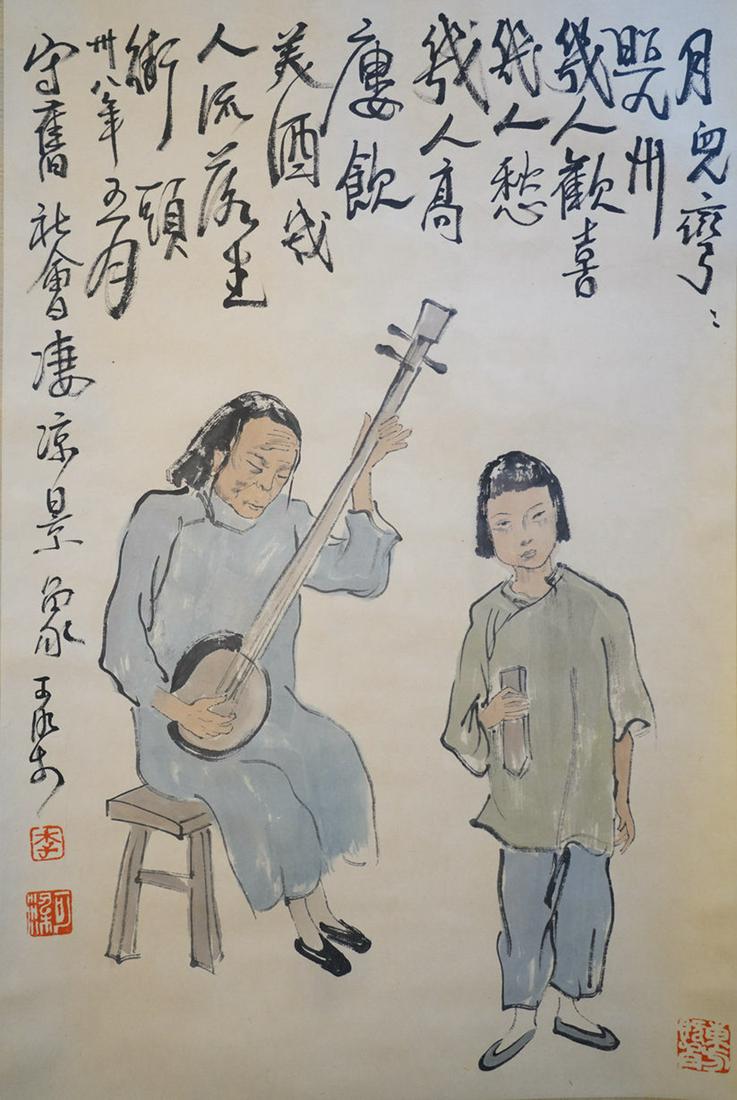 月兒彎〻
照九州
幾人歡喜
幾人愁
幾人高
廔飲
美酒幾
人流落在
街頭
卅八年五月
舊社會凄凉景象
李
可染